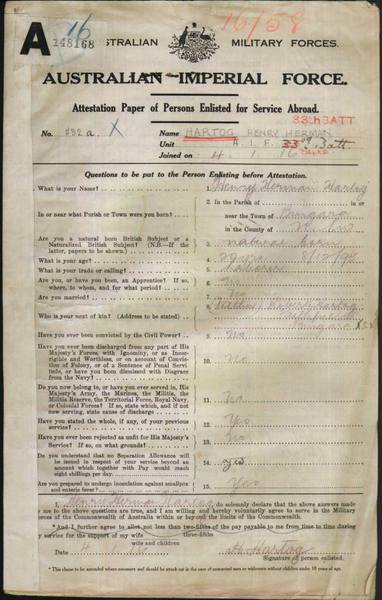 A 16 16/58
148168 AUSTRALIAN MILITARY FORCES.
AUSTRALIAN IMPERIAL FORCE.
Attestation Paper of Persons Enlisted for Service Abroad.
33rd BATT
No. X Name HARTOG HENRY HERMAN
Unit A. I. F. 33rd Batt
Joined on 4 1 16
Questions to be put to the Person Enlisting before Attestation.
What is your Name? 1. Henry Herman Hartog
In or near what Parish or Town were you born? 2. In the Parish of in or
near the Town of Bingara
in the County of
Are you a natural born British Subject or a Naturalized British Subject? (N.B.—If the latter, papers to be shown.) 3. natural born
What is your age? 4.
What is your trade or calling? 5. Labourer
Are you, or have you been, an Apprentice? If so, where, to whom, and for what period? 6. No
Are you married? 7. No
Who is your next of kin? (Address to be stated) 8. Hartog
Bingara
Have you ever been convicted by the Civil Power? 9. No
Have you ever been discharged from any part of His Majesty's Forces, with Ignominy, or as Incorrigible and Worthless, or on account of Conviction of Felony, or of a Sentence of Penal Servitude, or have you been dismissed with Disgrace from the Navy? 10. No
Do you now belong to, or have you ever served in, His Majesty's Army, the Marines, the Militia, the Militia Reserve, the Territorial Force, Royal Navy, or Colonial Forces? If so, state which, and if not now serving, state cause of discharge 11. No
Have you stated the whole, if any, of your previous service? 12. Yes
Have you ever been rejected as unfit for His Majesty's Service? If so, on what grounds? 13. No
Do you understand that no Separation Allowance will be issued in respect of your service beyond an amount which together with Pay would reach eight shillings per day. 14.
Are you prepared to undergo inoculation against smallpox and enteric fever? 15. Yes
I, Henry Herman Hartog do solemnly declare that the above answers made
by me to the above questions are true, and I am willing and hereby voluntarily agree to serve in the Military
Forces of the Commonwealth of Australia within or beyond the limits of the Commonwealth.
*And I further agree to allot not less than two-fifths of the pay payable to me from time to time during
three-fifths
my service for the support of my wife
wife and children
Date 4. 1. 16 Hartog
Signature of person enlisted.
*This clause should be struck out in the case of unmarried men or widowers without children under 18 years of age.